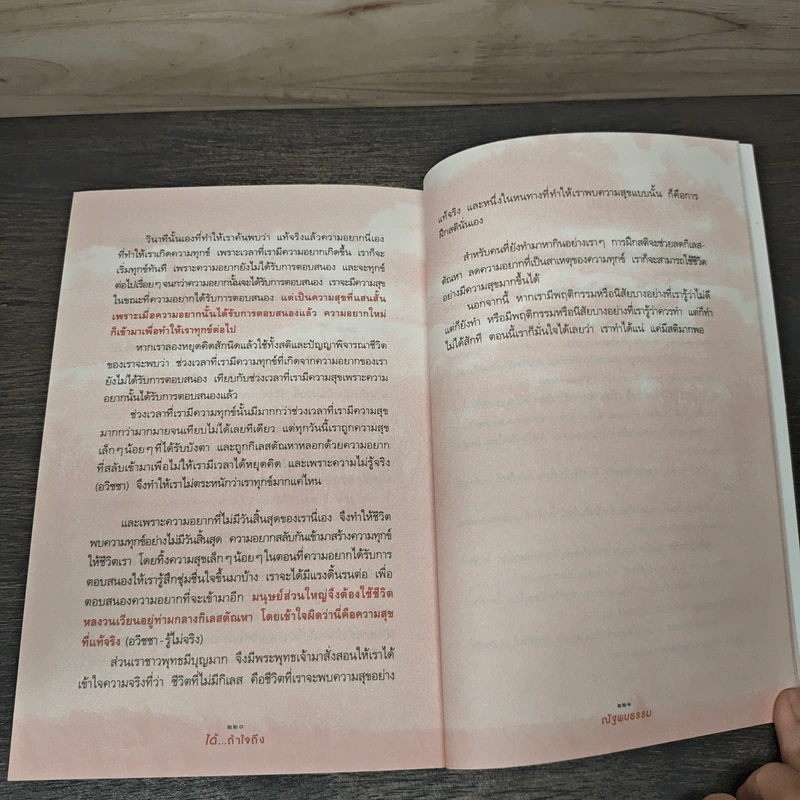 วินาทีนั้นเองที่ทำให้เราค้นพบว่า แท้จริงแล้วความอยากนี่เอง
ที่ทำให้เราเกิดความทุกข์ เพราะเวลาที่เรามีความอยากเกิดขึ้น เราก็จะ
เริ่มทุกข์ทันที เพราะความอยากยังไม่ได้รับการตอบสนอง และจะทุกข์
ต่อไปเรื่อยๆ จนกว่าความอยากนั้นจะได้รับการตอบสนอง เราจะมีความสุข
ในขณะที่ความอยากได้รับการตอบสนอง แต่เป็นความสุขที่แสนสั้น
เพราะเมื่อความอยากนั้นได้รับการตอบสนองแล้ว ความอยากใหม่
ก็เข้ามาเพื่อทำให้เราทุกข์ต่อไป
หากเราลองหยุดคิดสักนิดแล้วใช้ทั้งสติและปัญญาพิจารณาชีวิต
ของเราจะพบว่า ช่วงเวลาที่เรามีความทุกข์ที่เกิดจากความอยากของเรา
ยังไม่ได้รับการตอบสนอง เทียบกับช่วงเวลาที่เรามีความสุขเพราะความ
อยากนั้นได้รับการตอบสนองแล้ว
ช่วงเวลาที่เรามีความทุกข์นั้นมีมากกว่าช่วงเวลาที่เรามีความสุข
มากกว่ามากมายจนเทียบไม่ได้เลยทีเดียว แต่ทุกวันนี้เราถูกความสุข
เล็กๆ น้อยๆ ที่ได้รับบังตา และถูกกิเลสตัณหาหลอกด้วยความอยาก
ที่สลับเข้ามาเพื่อไม่ให้เรามีเวลาได้หยุดคิด และเพราะความไม่รู้จริง
(อวิชชา) จึงทำให้เราไม่ตระหนักว่าเราทุกข์มากแค่ไหน
และเพราะความอยากที่ไม่มีวันสิ้นสุดของเรานี่เอง จึงทำให้ชีวิต
พบความทุกข์อย่างไม่มีวันสิ้นสุด ความอยากสลับกันเข้ามาสร้างความทุกข์
ให้ชีวิตเรา โดยทิ้งความสุขเล็กๆ น้อยๆ ในตอนที่ความอยากได้รับการ
ตอบสนองให้เรารู้สึกชุ่มชื่นใจขึ้นมาบ้าง เราจะได้มีแรงดิ้นรนต่อ เพื่อ
ตอบสนองความอยากที่จะเข้ามาอีก มนุษย์ส่วนใหญ่จึงต้องใช้ชีวิต
หลงวนเวียนอยู่ท่ามกลางกิเลสตัณหา โดยเข้าใจผิดว่านี่คือความสุข
ที่แท้จริง (อวิชชา - รู้ไม่จริง)
ส่วนเราชาวพุทธมีบุญมาก จึงมีพระพุทธเจ้ามาสั่งสอนให้เราได้
เข้าใจความจริงที่ว่า ชีวิตที่ไม่มีกิเลส คือชีวิตที่เราจะพบความสุขอย่าง
๒๒๐
ได้...ถ้าใจถึง
แท้จริง และหนึ่งในหนทางที่ทำให้เราพบความสุขแบบนั้น ก็คือการ
ฝึกสตินั่นเอง
สำหรับคนที่ยังทำมาหากินอย่างเราๆ การฝึกสติจะช่วยลดกิเลส-
ตัณหา ลดความอยากที่เป็นสาเหตุของความทุกข์ เราก็จะสามารถใช้ชีวิต
อย่างมีความสุขมากขึ้นได้
นอกจากนี้ หากเรามีพฤติกรรมหรือนิสัยบางอย่างที่เรารู้ว่าไม่ดี
แต่ก็ยังทำ หรือมีพฤติกรรมหรือนิสัยบางอย่างที่เรารู้ว่าควรทำ แต่ก็ทำ
ไม่ได้สักที ตอนนี้เราก็มั่นใจได้เลยว่า เราทำได้แน่ แค่มีสติมากพอ
๒๒๑
ณัฐพบธรรม